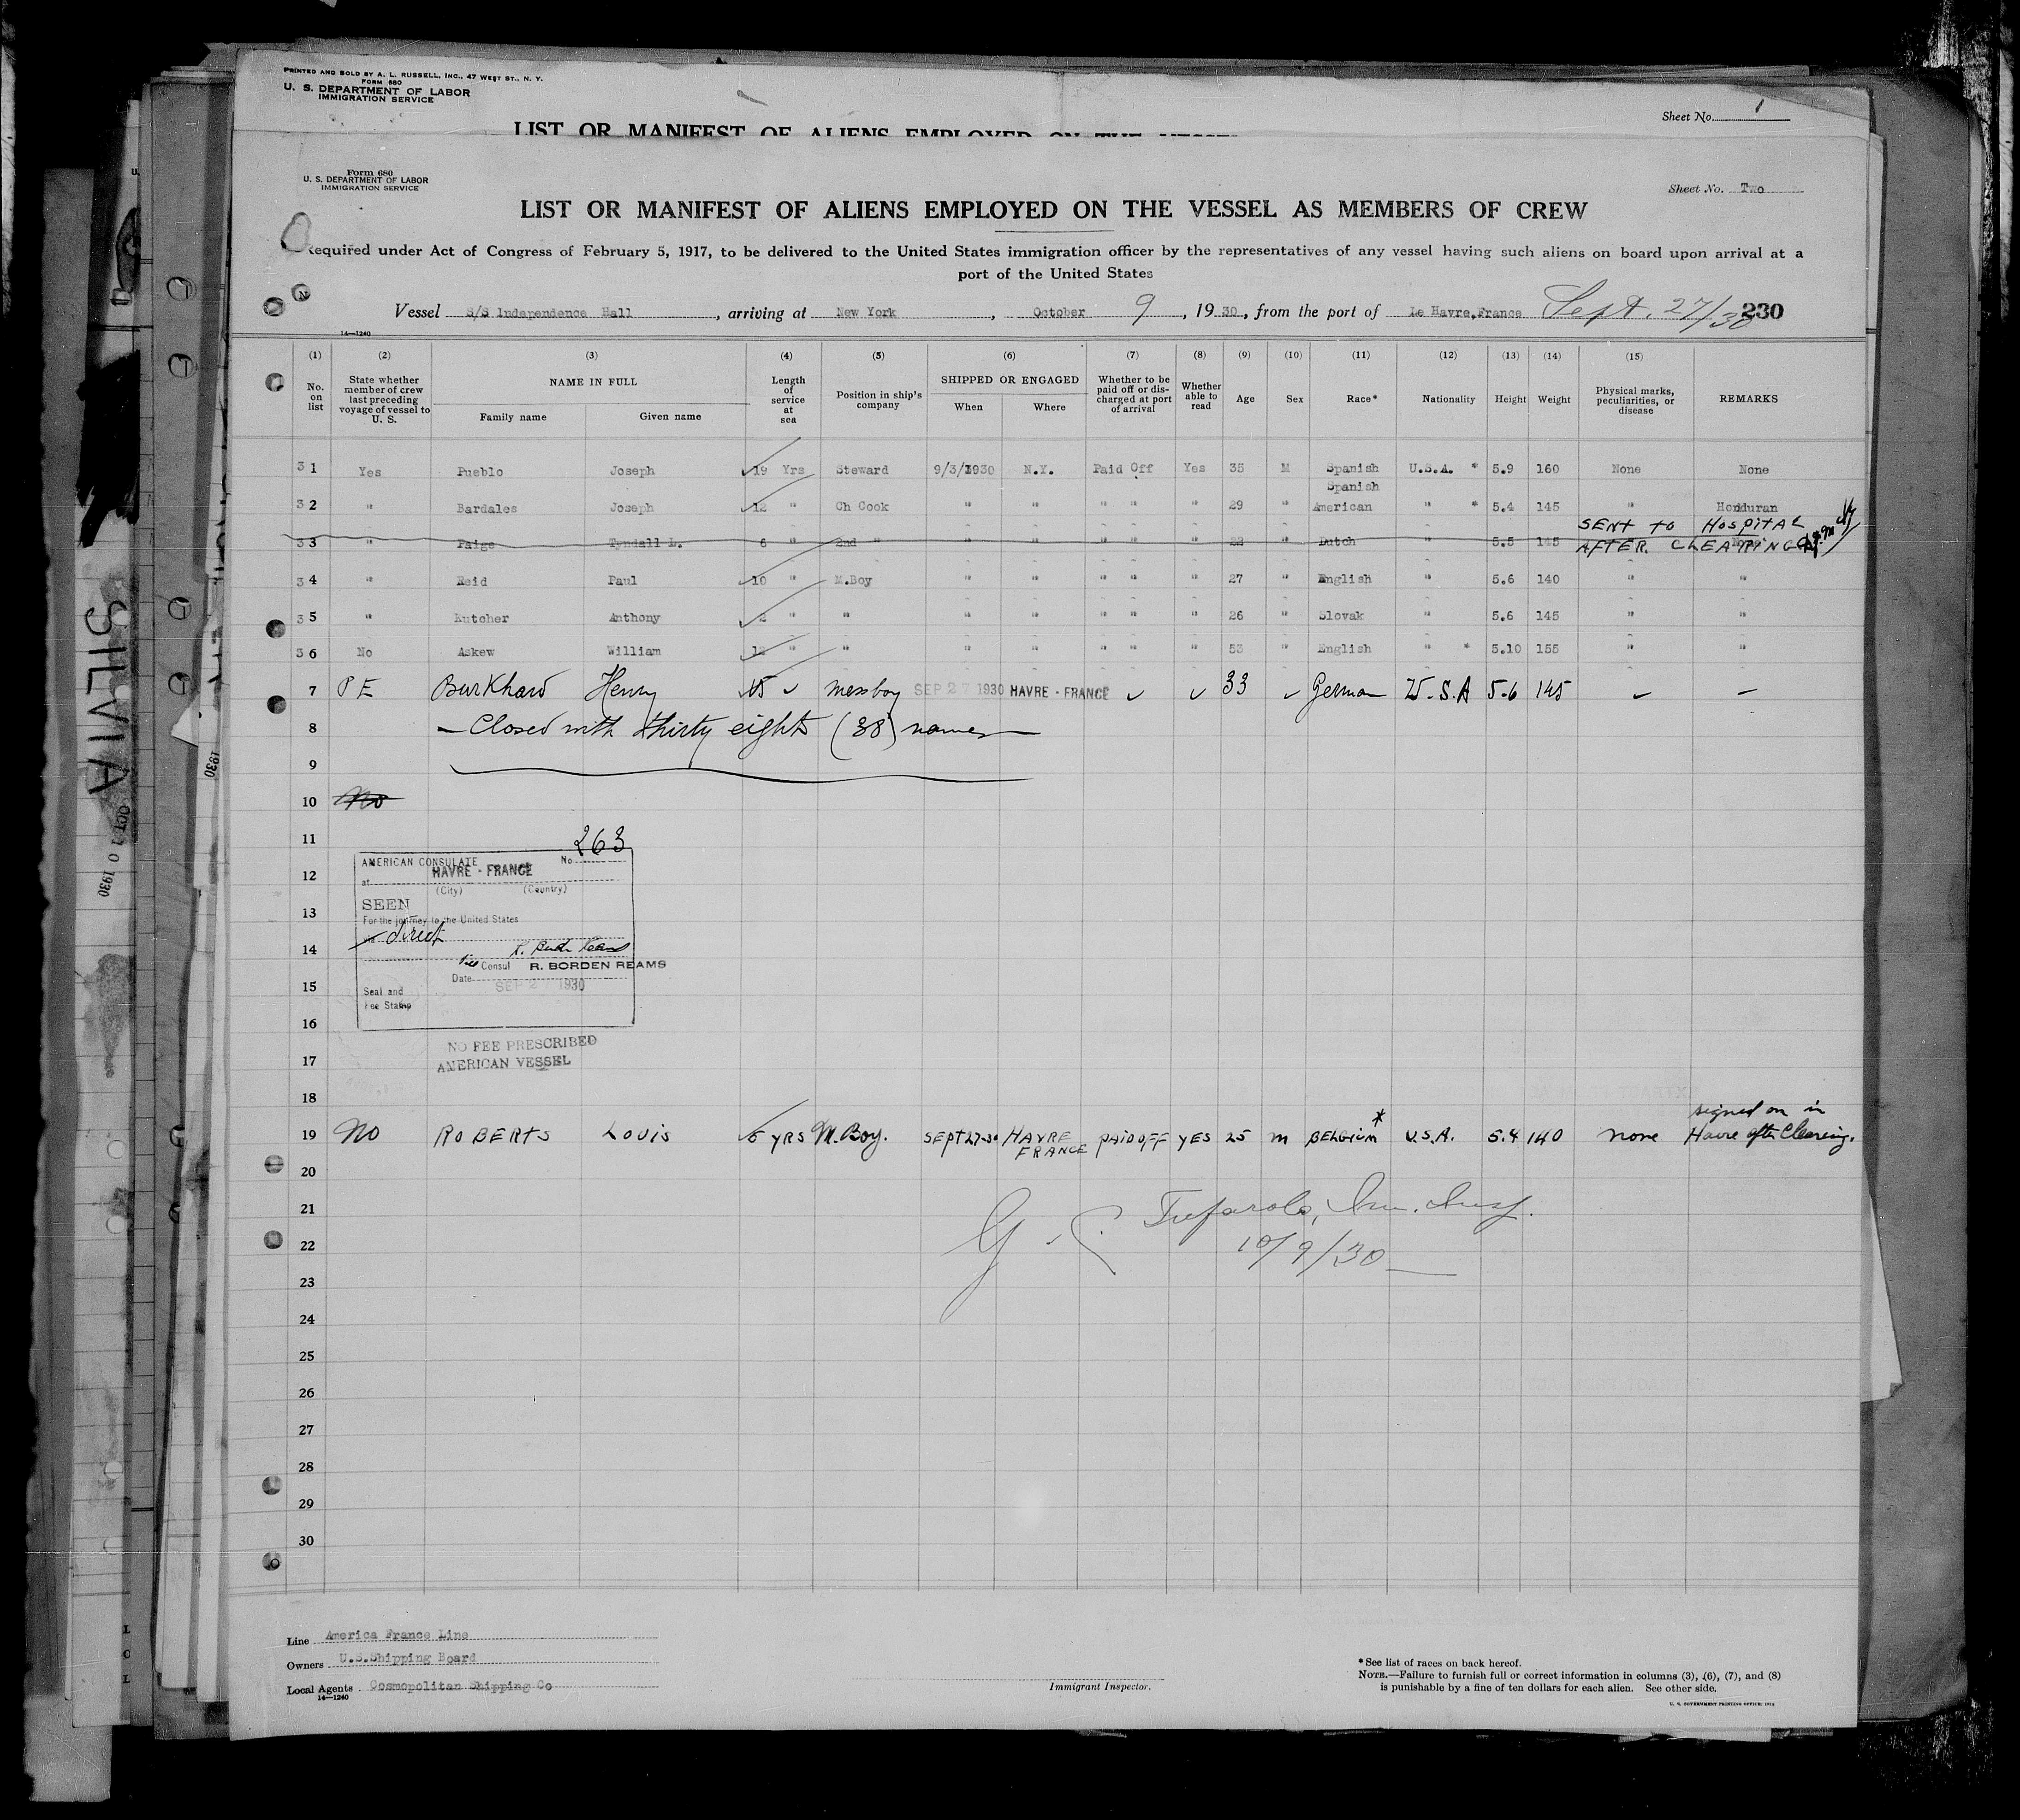 PRINTED AND SOLD BY A. L. RUSSELL, INC., 47 WEST ST., N. Y.
FORM 680
U. S. DEPARTMENT OF LABOR
IMMIGRATION SERVICE
Sheet No. 1
LIST OR MANIFEST OF ALIENS EMPLOYED ON THE VESSEL
Form 680
U. S. DEPARTMENT OF LABOR
IMMIGRATION SERVICE
Sheet No. Two
LIST OR MANIFEST OF ALIENS EMPLOYED ON THE VESSEL AS MEMBERS OF CREW
Required under Act of Congress of February 5, 1917, to be delivered to the United States immigration officer by the representatives of any vessel having such aliens on board upon arrival at a
port of the United States
Vessel S/S Independence Hall, arriving at New York, October 9, 1930, from the port of Le Havre, France Sept. 27/30 230
14—1240
(1) (2) (3) (4) (5) (6) (7) (8) (9) (10) (11) (12) (13) (14) (15)
No. on list
State whether member of crew last preceding voyage of vessel to U. S.
NAME IN FULL
Family name Given name
Length of service at sea
Position in ship's company
SHIPPED OR ENGAGED
When Where
Whether to be paid off or discharged at port of arrival
Whether able to read
Age Sex Race* Nationality Height Weight
Physical marks, peculiarities, or disease
REMARKS
31 Yes Pueblo Joseph 19 Yrs Steward 9/3/1930 N.Y. Paid Off Yes 35 M Spanish U.S.A. * 5.9 160 None None
32 " Bardales Joseph 12 " Ch Cook " " " " " 29 " Spanish American " * 5.4 145 " Honduran
33 " Paige Tyndall L. 6 " 2nd " " " " " " 22 " Dutch " 5.5 145
SENT TO HOSPITAL
AFTER CLEARING
34 " Reid Paul 10 " M.Boy " " " " " 27 " English " 5.6 140 " "
35 " Kutcher Anthony 2 " " " " " " " 26 " Slovak " 5.6 145 " "
36 No Askew William 12 " " " " " " " 53 " English " * 5.10 155 " "
7 P E Burkhard Henry 15 ✓ messboy SEP 27 1930 HAVRE - FRANCE ✓ ✓ 33 ✓ German U.S.A 5.6 145 ✓ —
8 — Closed with thirty eight (38) names —
9
10 No
11
263
AMERICAN CONSULATE No.
12
at HAVRE - FRANCE
(City) (Country)
13
SEEN
For the journey to the United States
via direct
14
Vice Consul R. BORDEN REAMS
Date SEP 2 1930
15
Seal and
Fee Stamp
16
NO FEE PRESCRIBED
17
AMERICAN VESSEL
18
19 No ROBERTS LOUIS 6 YRS M. Boy. SEPT 27-30 HAVRE FRANCE PAID OFF YES 25 M BELGIUM * U.S.A. 5.4 140 none signed on in Havre after Clearing.
20
21
Imm. Insp.
22
10/9/30
23
24
25
26
27
28
29
30
Line America France Line
Owners U.S.Shipping Board
Local Agents Cosmopolitan Shipping Co
14—1240
Immigrant Inspector.
*See list of races on back hereof.
NOTE.—Failure to furnish full or correct information in columns (3), (6), (7), and (8)
is punishable by a fine of ten dollars for each alien. See other side.
U. S. GOVERNMENT PRINTING OFFICE
SILVIA
OCT 10 1930
1930